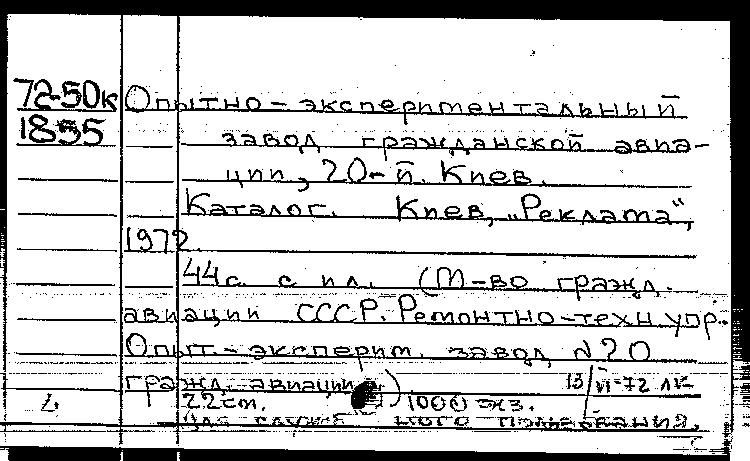 72-50к Опытно-экспериментальный
1855 завод гражданской авиа-
ции, 20-й. Киев.
Каталог. Киев, „Реклама“,
1972.
44с. с ил. (М-во гражд.
авиации СССР. Ремонтно-техн. упр.
Опыт.-эксперим. завод №20
гражд. авиации.) 13/VI-72 ЛК
22 см. 1000 экз.
Для служеб ного пользования.